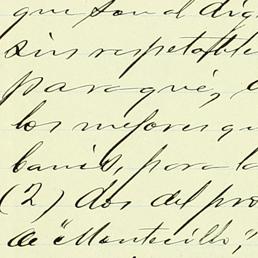 que son el dig
sus respetable
para qué,
los mejores qu
banis, para la
(2) dos del pro
de "Montecillo",